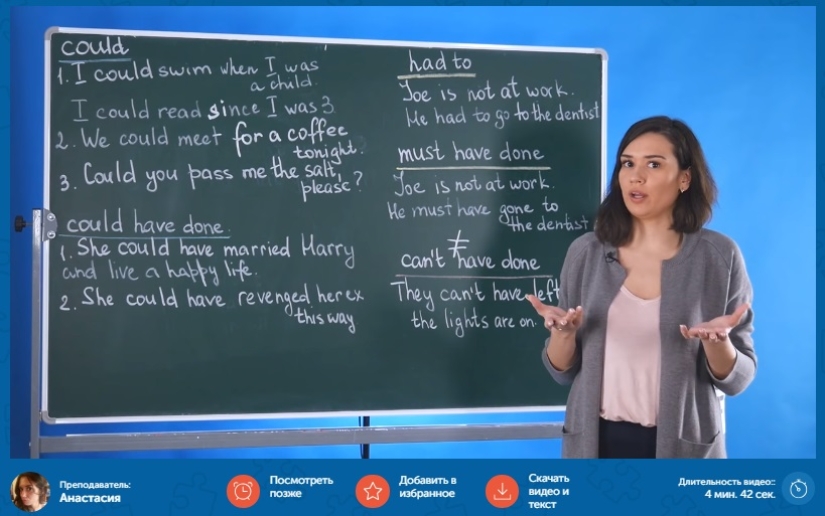 could
1. I could swim when I was
a child.
I could read since I was 3
2. We could meet for a coffee
tonight.
3. Could you pass me the salt,
please?
could have done.
1. She could have married Harry
and live a happy life.
2. She could have revenged her ex
this way
had to
Joe is not at work.
He had to go to the dentist
must have done
Joe is not at work.
He must have gone to
the dentist
≠
can't have done
They can't have left
the lights are on.
Преподаватель:
Анастасия
Посмотреть
позже
Добавить в
избранное
Скачать
видео и
текст
Длительность видео::
4 мин. 42 сек.